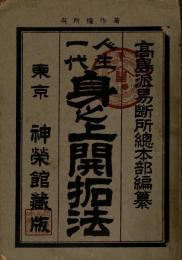 著作権所有
高島派易断所總本部編纂
人生一代
身の上開拓法
東京 神榮館藏版